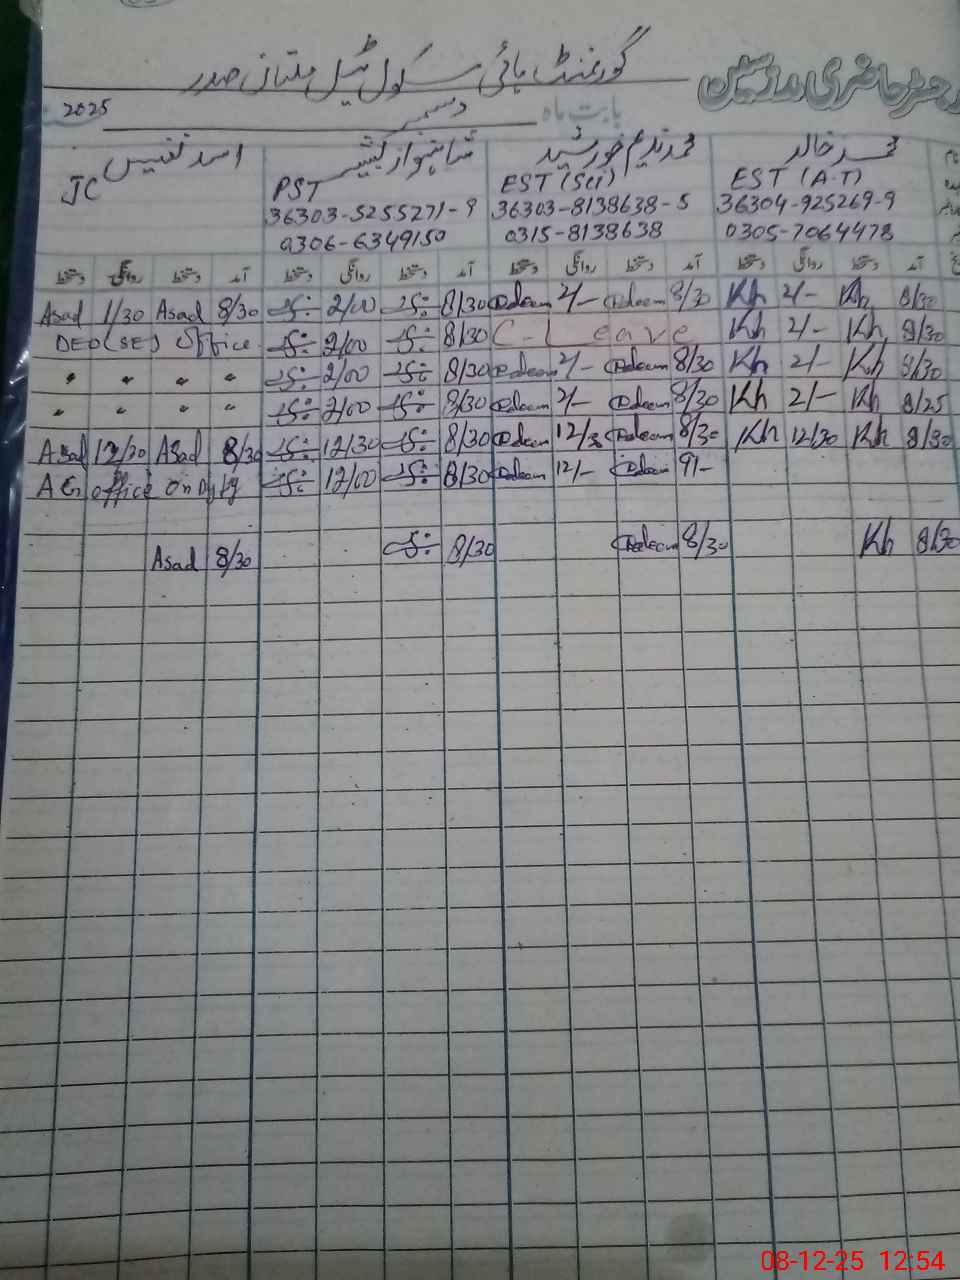 گورنمنٹ ہائی سکول ٹبل ملتانی صدر
رجسٹر حاضری مدرسین
بابت ماہ دسمبر 2025
محمد خالد محمد ندیم خورشید شاہنواز اسد نفیس
EST (A-T) EST (Sci) PST JC
36304-925269-9 36303-8138638-5 36303-5255271-9
0305-7064478 0315-8138638 0306-6349150
دستخط روانگی دستخط آمد دستخط روانگی دستخط آمد دستخط روانگی دستخط آمد دستخط روانگی دستخط آمد
Asad 1/30 Asad 8/30 2/00 8/30 2/- 8/30 Kh 2/- Kh 8/30
DEO (SE) Office 2/00 8/30 C-Leave Kh 2/- Kh 8/30
" " " " 2/00 8/30 2/- 8/30 Kh 2/- Kh 8/30
" " " " 2/00 8/30 2/- 8/30 Kh 2/- Kh 8/25
Asad 12/30 Asad 8/30 12/30 8/30 12/30 8/30 Kh 12/30 Kh 8/30
office on 12/00 8/30 12/- 9/-
Asad 8/30 8/30 8/30 Kh 8/30
08-12-25 12:54